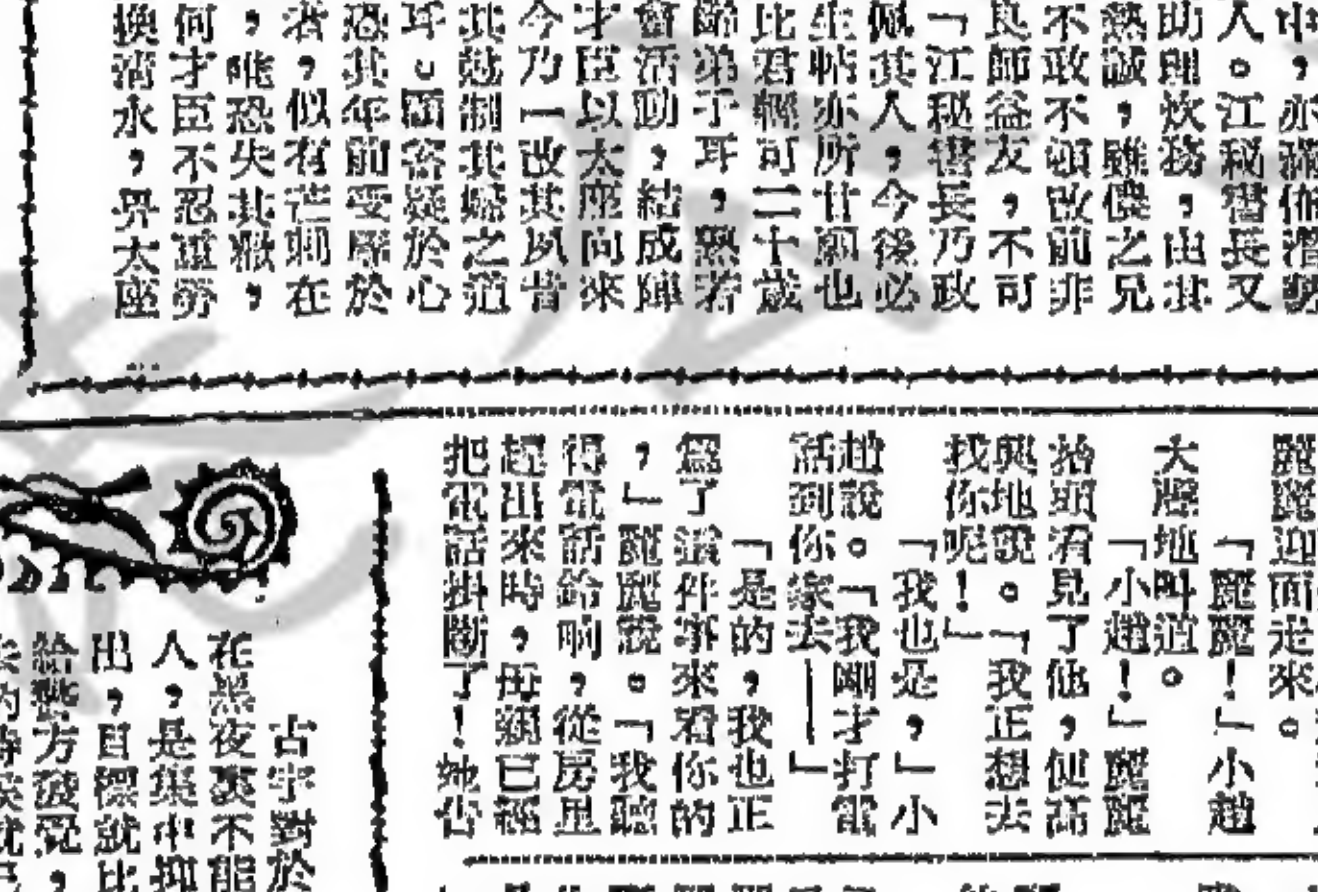 中，亦
人。江秘書長又
助理炊務，由其
熱誠，雖儍之兄
不敢不頓改前非
良師益友，不可
「江秘書長乃政
佩其人，今後必
生帖亦所甘願也
比君輕可二十歲
齡弟子耳，
會活動，結成陣
才臣以太座向來
今乃一改其夙昔
其尅制其
之道
耳。顧客疑於心
恐其年前受
於
者，似有芒刺在
，唯恐失其歡，
何才臣不忍重勞
換清水，畀太座
麗麗迎面走來。
「麗麗！」小趙
大聲地叫道。
「小趙！」麗麗
抬頭看見了他，便高
興地說。「我正想去
找你呢！」
「我也是，」小
趙說。「我剛才打電
話到你家去——」
「是的，我也正
爲了這件事來看你的
，」麗麗說。「我聽
得電話鈴响，從房里
趕出來時，母親已經
把電話掛斷了！她告
古宇對於
在黑夜裏不能
人，是集中抑
出，目標就比
給對方發覺，